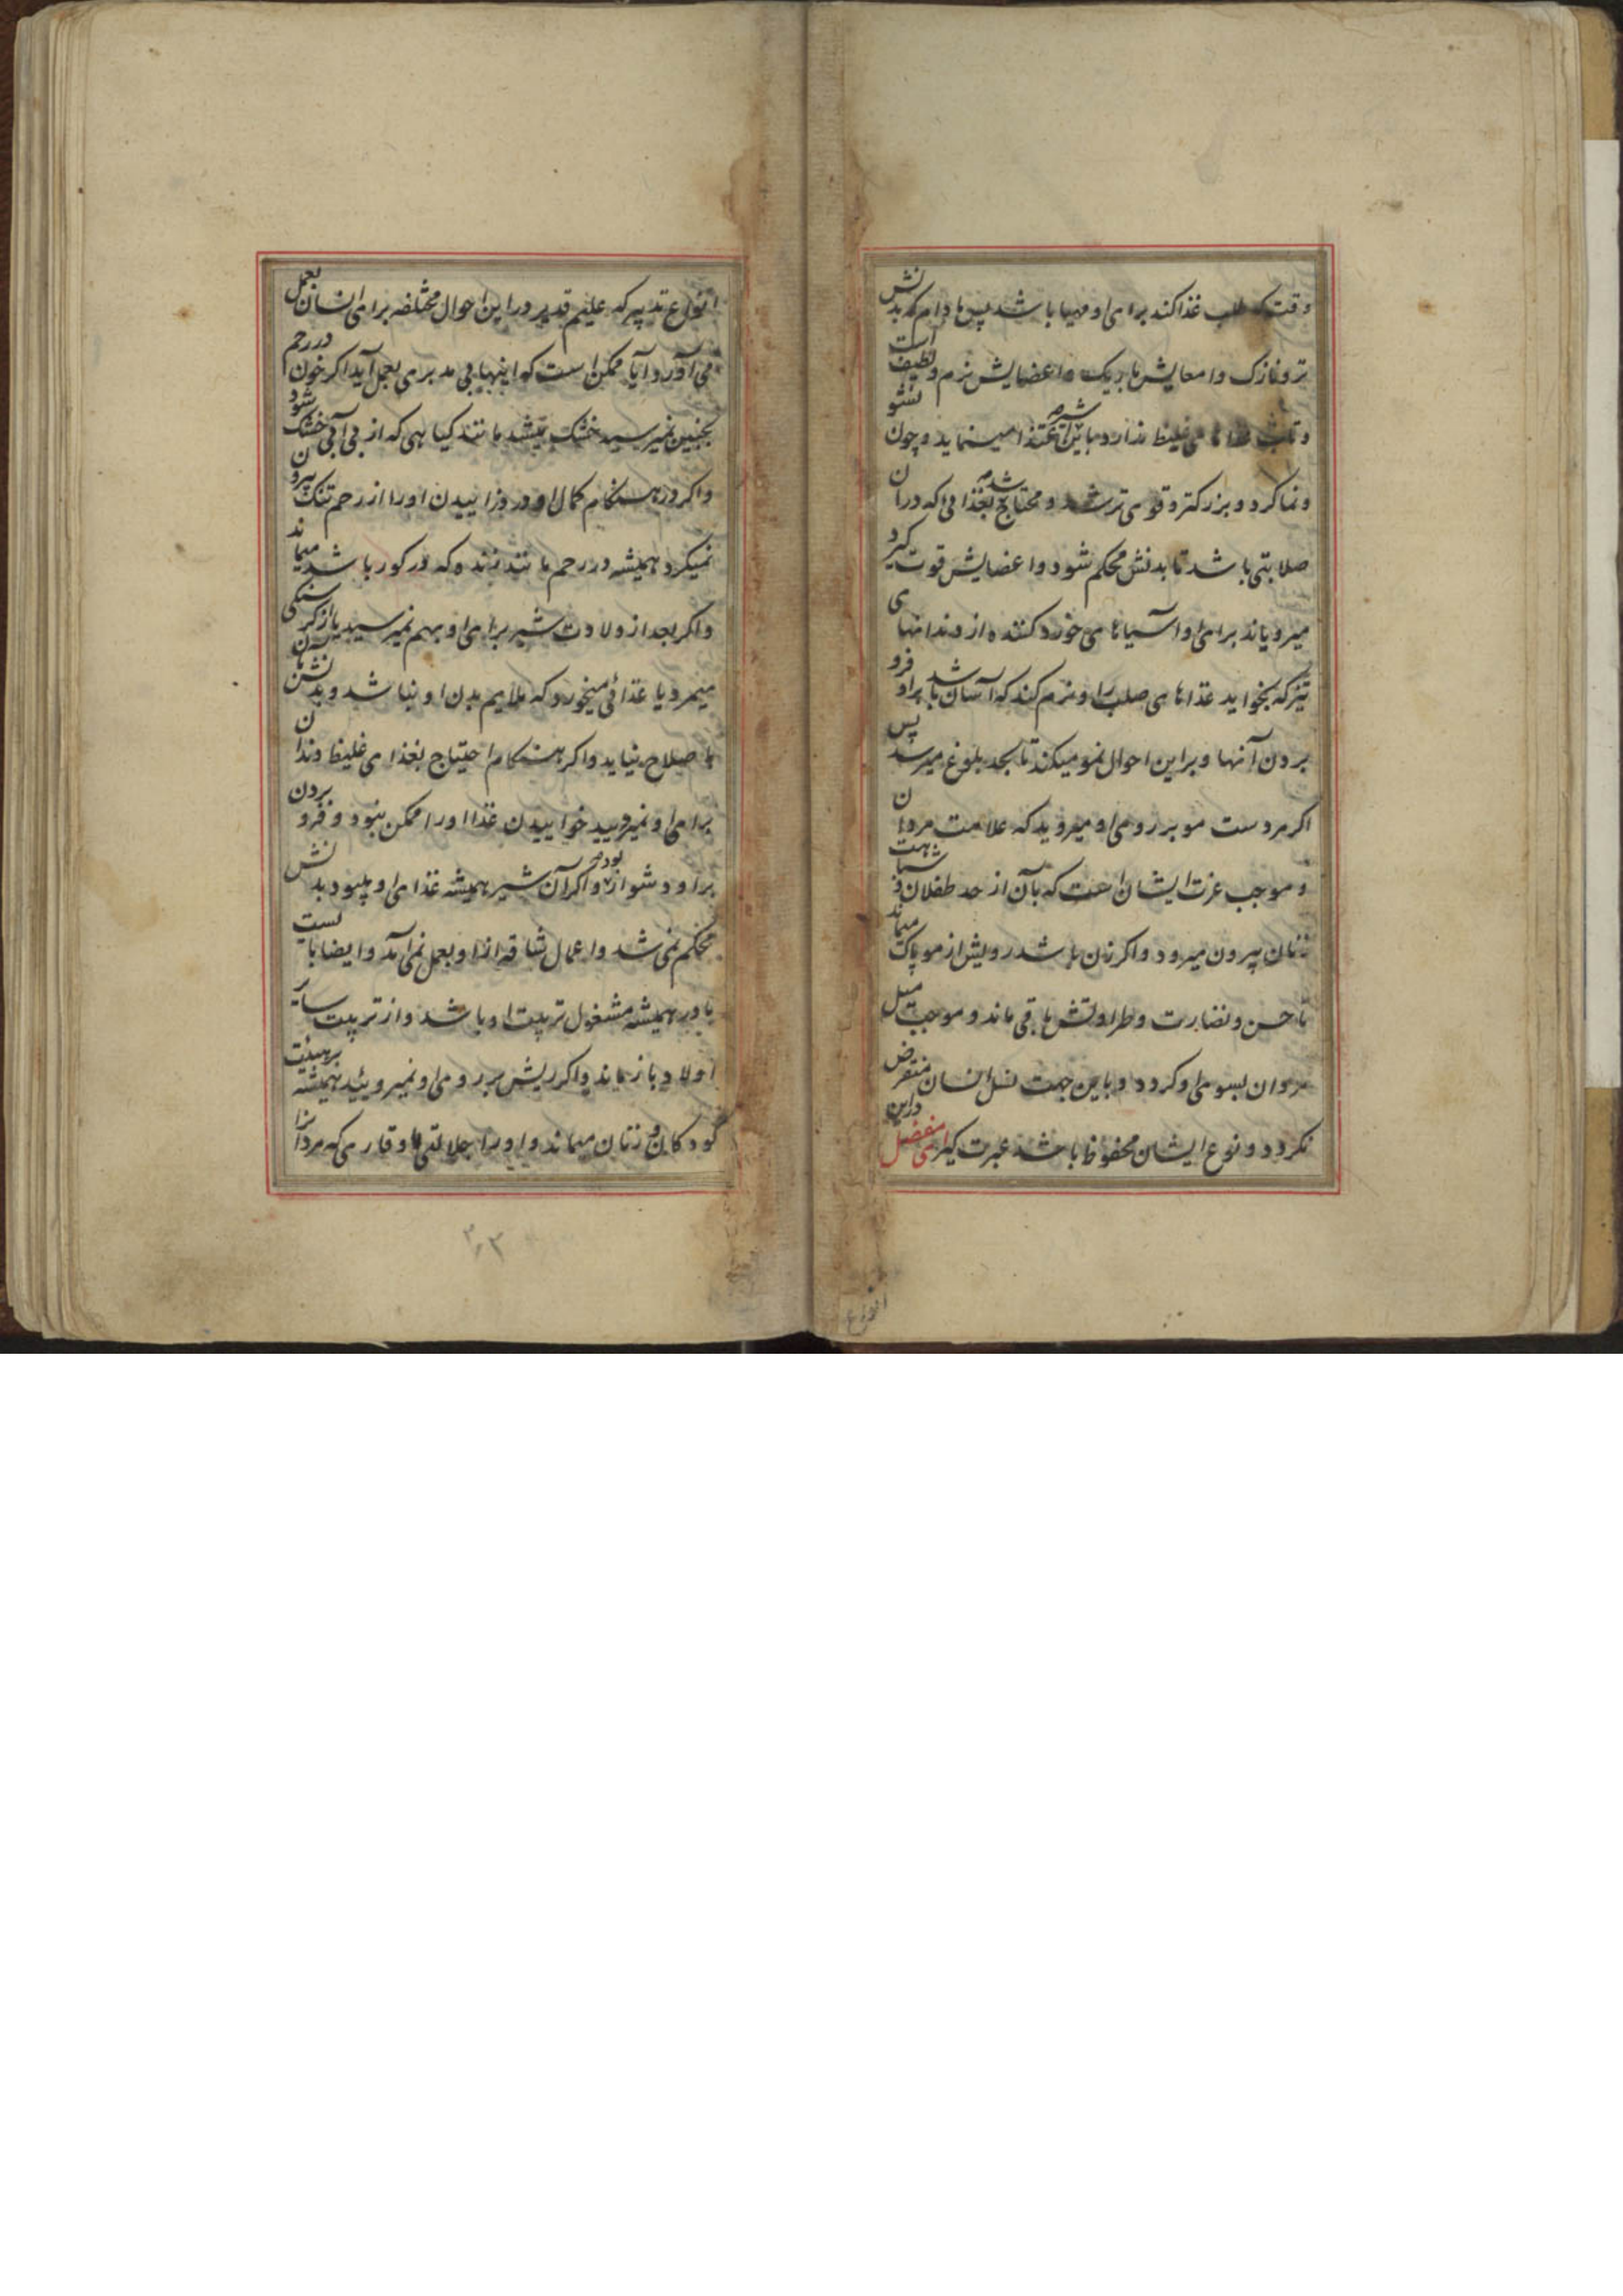 وقت که طلب غذا کند برای او مهیا باشد پس مادام که بدنش
تر و نازک و امعایش باریک و اعضایش نرم و لطیف است
و تاب غذاهای غلیظ ندارد باین شیر اغتذا مینماید و چون نشو
و نما کرد و بزرکتر و قوی تر شد و محتاج شد بغذائی که در آن
صلابتی باشد تا بدنش محکم شود و اعضایش قوت کیرد
میرویاند برای او آسیاهای خورد کننده از دندانهای
تیز که بخواید غذاهای صلب را و نرم کند که آسان باشد بر او فرو
بردن آنها و بر این احوال نمو میکند تا بحد بلوغ میرسد پس
اکر مردست مو بر روی او میروید که علامت مردان
و موجب عزت ایشان است که بآن از حد طفلان و شباهت
زنان بیرون میرود و اکر زن باشد رویش از مو پاک میماند
تا حسن و نضارت و طراوتش باقی ماند و موجب میل
مردان بسوی او کردد و باین جهت نسل انسان منقرض
نکردد و نوع ایشان محفوظ باشد عبرت کیر ای مفضل در این
انواع
انواع تدبیر که علیم قدیر در این احوال مختلفه برای انسان بعمل
می آورد آیا ممکن است که اینها بی مدبری بعمل آید اکر خون در رحم
بجنین نمیرسید خشک میشد مانند کیاهی که از بی آبی خشک شود
و اکر در هنکام کمال او درد زاییدن او را از رحم تنک بیرون
نمیکرد همیشه در رحم مانند زنده که در کور باشد میماند
و اکر بعد از ولادت شیر برای او بهم نمیرسید یا از کرسنکی
میمرد یا غذائی میخورد که ملایم بدن او نباشد و بدنش بآن
باصلاح نیاید و اکر هنکام احتیاج بغذای غلیظ دندان
برای او نمیرویید خواییدن غذا او را ممکن نبود و فرو بردن
بر او دشوار بود و اکر آن شیر همیشه غذای او میبود بدنش
محکم نمی شد و اعمال شاقه از او بعمل نمی آمد و ایضا بایست
مادر همیشه مشغول تربیت او باشد و از تربیت سایر
اولاد بازماند و اکر ریش بر روی او نمیرویید همیشه بر هیئت
کودکان و زنان میماند و او را جلالتی و وقاری که مردان را
۲۰۳